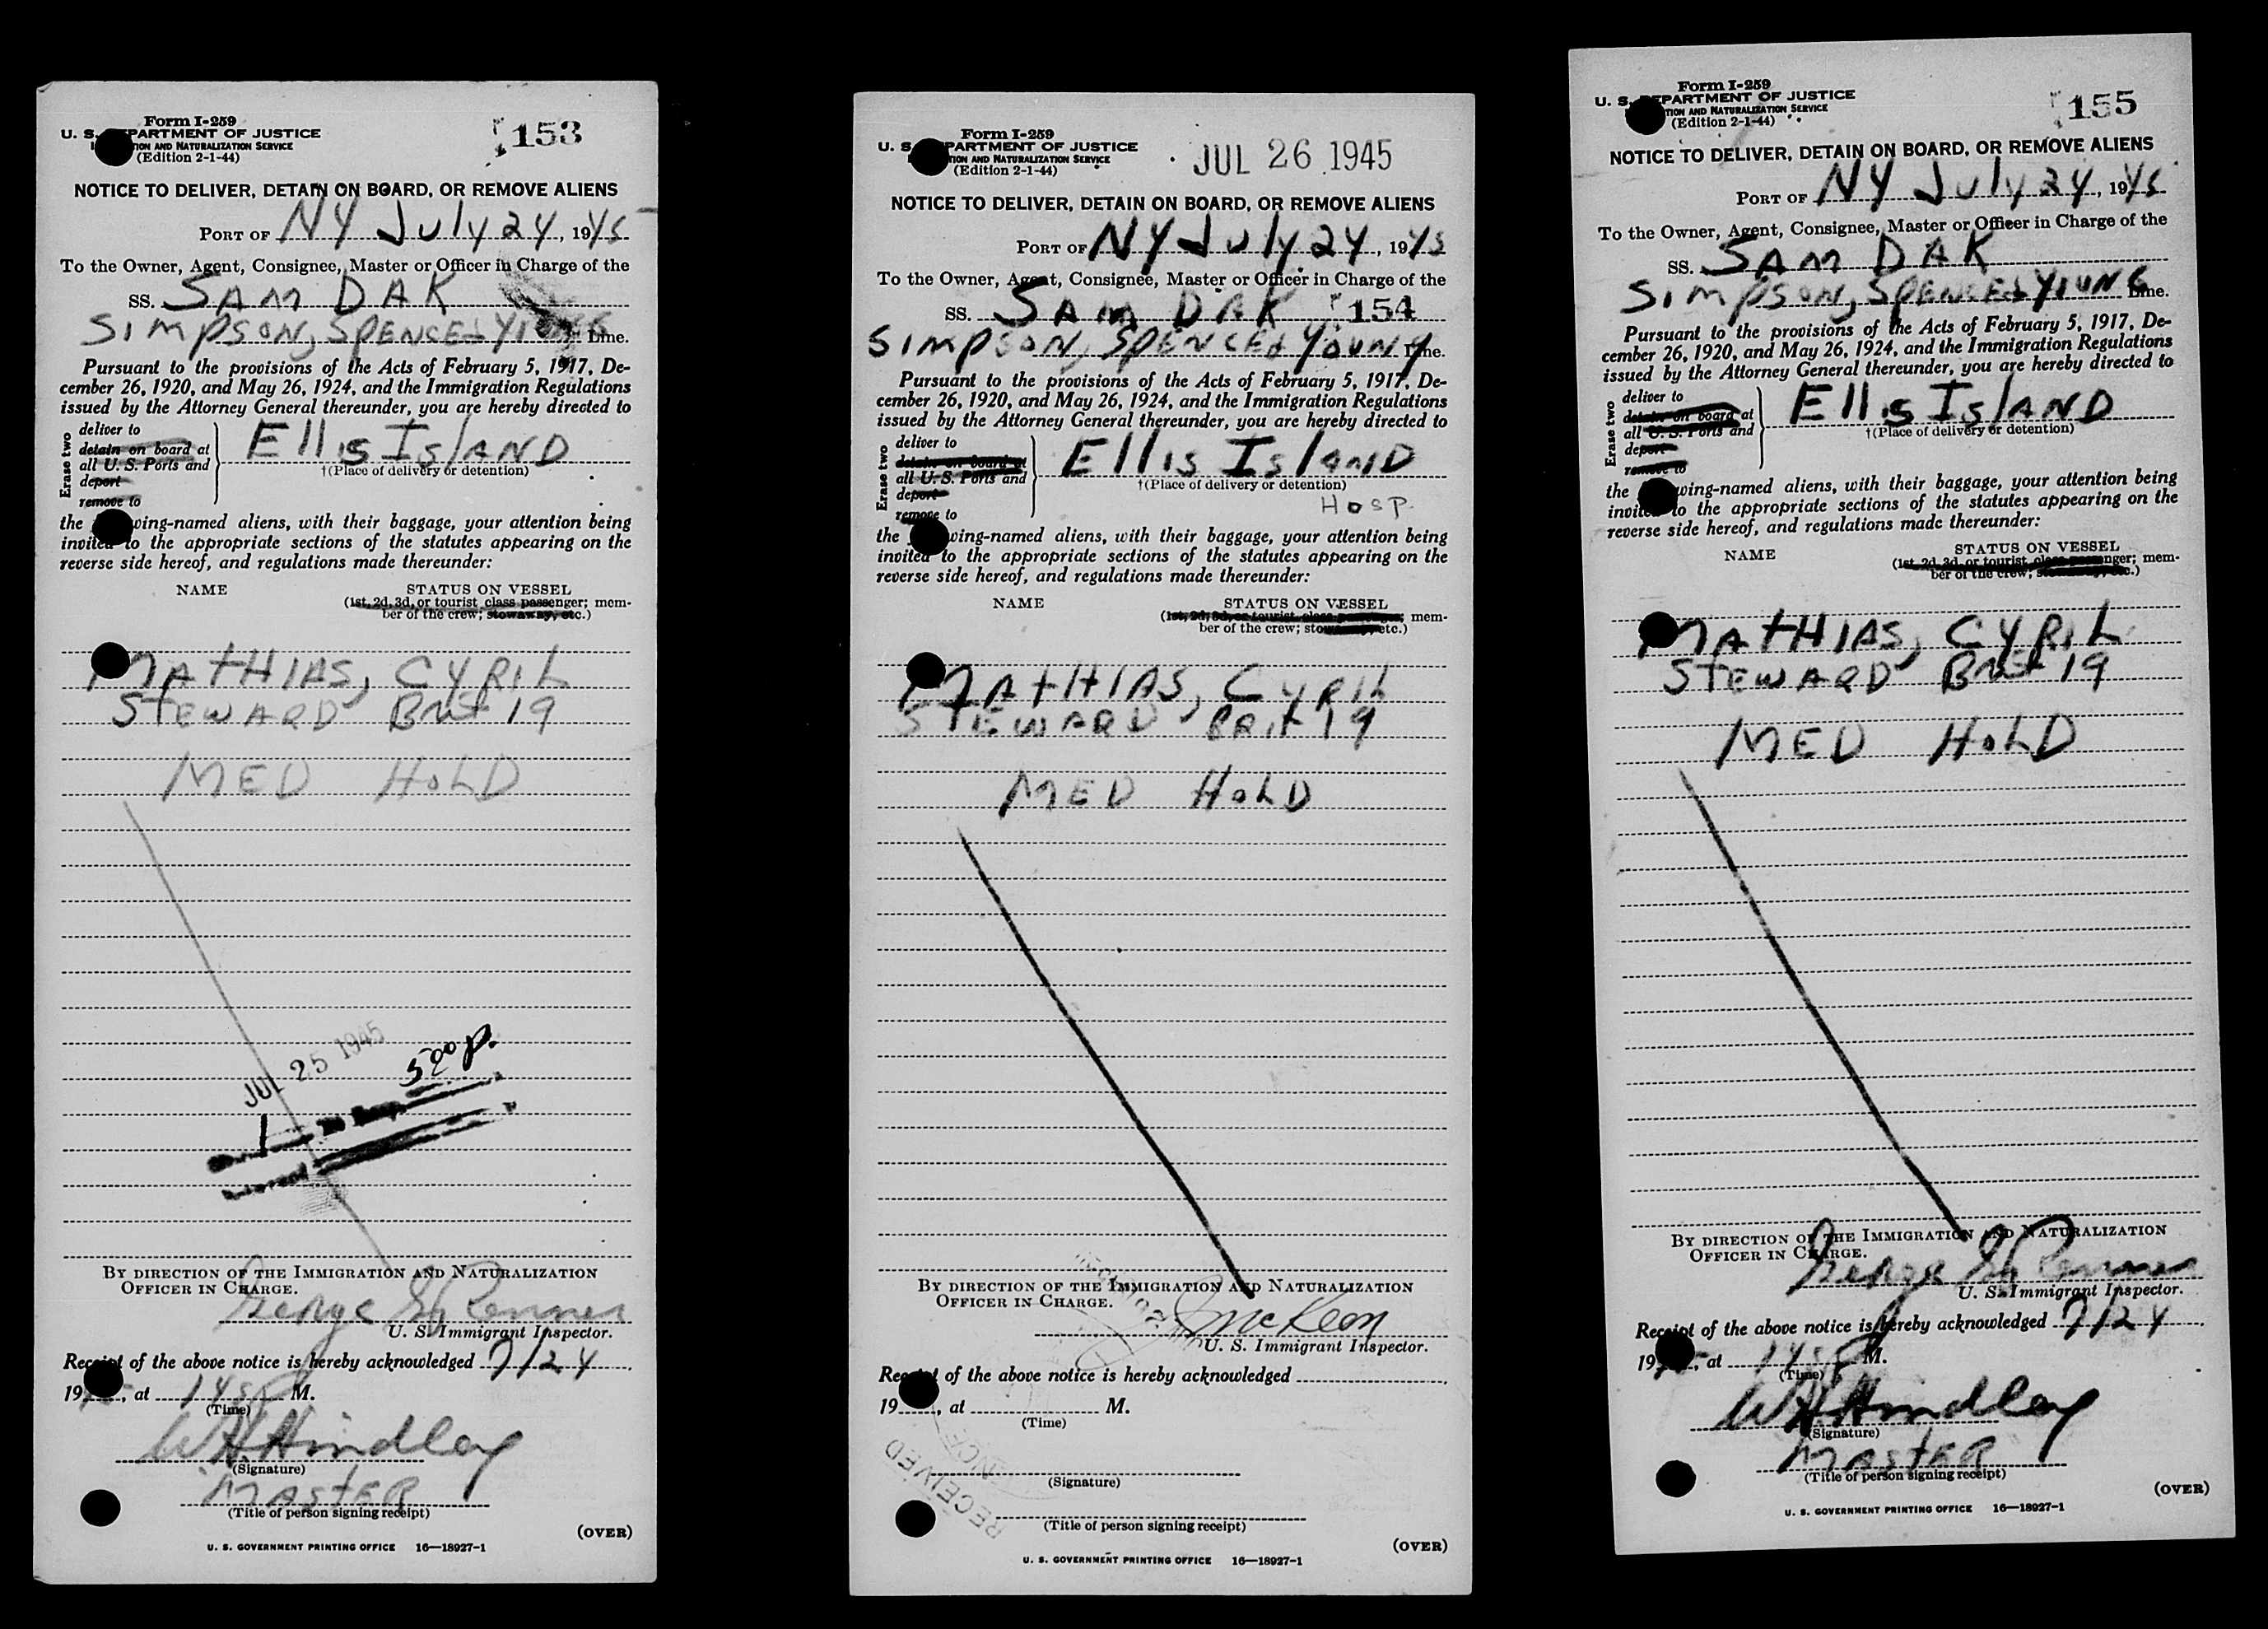 Form I-259
U. S. DEPARTMENT OF JUSTICE
TION AND NATURALIZATION SERVICE
(Edition 2-1-44)
153
NOTICE TO DELIVER, DETAIN ON BOARD, OR REMOVE ALIENS
PORT OF NY July 24, 1945
To the Owner, Agent, Consignee, Master or Officer in Charge of the
SS. SAM DAK
SIMPSON, SPENCE & YOUNG Line.
Pursuant to the provisions of the Acts of February 5, 1917, De-
cember 26, 1920, and May 26, 1924, and the Immigration Regulations
issued by the Attorney General thereunder, you are hereby directed to
Erase two
deliver to
detain on board at
all U. S. Ports and
deport
remove to
Ellis IslAND
†(Place of delivery or detention)
the following-named aliens, with their baggage, your attention being
invited to the appropriate sections of the statutes appearing on the
reverse side hereof, and regulations made thereunder:
NAME STATUS ON VESSEL
(1st, 2d, 3d, or tourist class passenger; mem-
ber of the crew; stowaway, etc.)
MATHIAS, CYRIL
STEWARD Brit 19
MED HOLD
JUL 25 1945
5 00 p.
1
BY DIRECTION OF THE IMMIGRATION AND NATURALIZATION
OFFICER IN CHARGE.
George Renner
U. S. Immigrant Inspector.
Receipt of the above notice is hereby acknowledged 7/24,
1945, at 145 P M.
(Time)
W H Hindley
(Signature)
MASTER
(Title of person signing receipt)
(OVER)
U. S. GOVERNMENT PRINTING OFFICE 16—18927-1
Form I-259
U. S. DEPARTMENT OF JUSTICE
TION AND NATURALIZATION SERVICE
(Edition 2-1-44)
JUL 26 1945
NOTICE TO DELIVER, DETAIN ON BOARD, OR REMOVE ALIENS
PORT OF NY July 24, 1945
To the Owner, Agent, Consignee, Master or Officer in Charge of the
SS. SAM DAK 154
SIMPSON, SPENCE & YOUNG Line.
Pursuant to the provisions of the Acts of February 5, 1917, De-
cember 26, 1920, and May 26, 1924, and the Immigration Regulations
issued by the Attorney General thereunder, you are hereby directed to
Erase two
deliver to
detain on board at
all U. S. Ports and
deport
remove to
Ellis IslAND
†(Place of delivery or detention)
HOSP.
the following-named aliens, with their baggage, your attention being
invited to the appropriate sections of the statutes appearing on the
reverse side hereof, and regulations made thereunder:
NAME STATUS ON VESSEL
(1st, 2d, 3d, or tourist class passenger; mem-
ber of the crew; stowaway, etc.)
MATHIAS, CYRIL
STEWARD BRit 19
MED HOLD
BY DIRECTION OF THE IMMIGRATION AND NATURALIZATION
OFFICER IN CHARGE.
McKeon
U. S. Immigrant Inspector.
Receipt of the above notice is hereby acknowledged
19, at M.
(Time)
RECEIVED
(Signature)
(Title of person signing receipt)
(OVER)
U. S. GOVERNMENT PRINTING OFFICE 16—18927-1
Form I-259
U. S. DEPARTMENT OF JUSTICE
TION AND NATURALIZATION SERVICE
(Edition 2-1-44)
155
NOTICE TO DELIVER, DETAIN ON BOARD, OR REMOVE ALIENS
PORT OF NY July 24, 1945
To the Owner, Agent, Consignee, Master or Officer in Charge of the
SS. SAM DAK
SIMPSON, SPENCE & YOUNG Line.
Pursuant to the provisions of the Acts of February 5, 1917, De-
cember 26, 1920, and May 26, 1924, and the Immigration Regulations
issued by the Attorney General thereunder, you are hereby directed to
Erase two
deliver to
detain on board at
all U. S. Ports and
deport
remove to
Ellis IslAND
†(Place of delivery or detention)
the following-named aliens, with their baggage, your attention being
invited to the appropriate sections of the statutes appearing on the
reverse side hereof, and regulations made thereunder:
NAME STATUS ON VESSEL
(1st, 2d, 3d, or tourist class passenger; mem-
ber of the crew; stowaway, etc.)
MATHIAS, CYRIL
STEWARD Brit 19
MED HOLD
BY DIRECTION OF THE IMMIGRATION AND NATURALIZATION
OFFICER IN CHARGE.
George Renner
U. S. Immigrant Inspector.
Receipt of the above notice is hereby acknowledged 7/24,
1945, at 145 P M.
(Time)
W H Hindley
(Signature)
MASTER
(Title of person signing receipt)
(OVER)
U. S. GOVERNMENT PRINTING OFFICE 16—18927-1